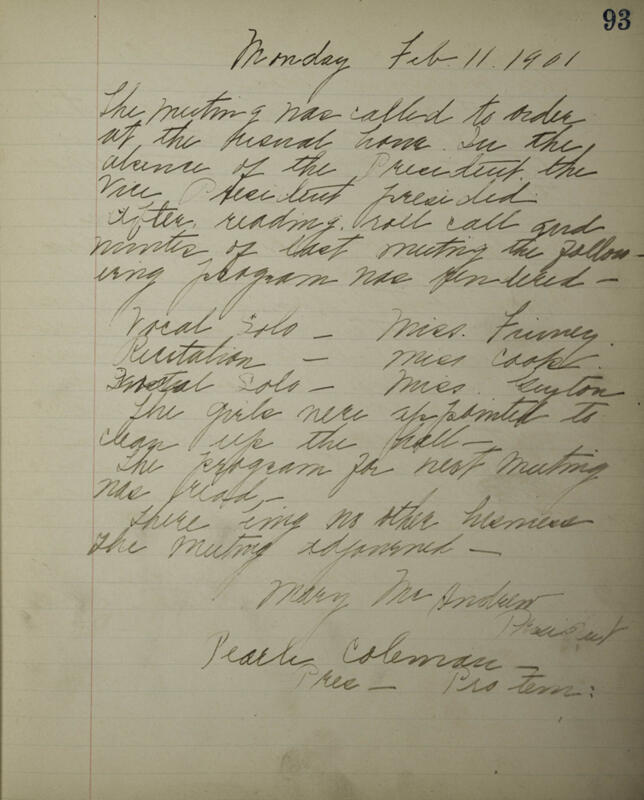 93
Monday Feb. 11. 1901
The meeting was called to order
at the usual hour. In the
absence of the President the
Vice President presided
After reading roll call and
minutes of last meeting the follow-
ing program was rendered -
Vocal Solo - Miss. Finney.
Recitation - Miss Cook
Solo - Miss. Guyton
The girls were appointed to
clean up the hall -
The program for next meeting
was read, -
There eing no other business
the meeting adjourned -
Mary Mc Andrew
President
Pearle Coleman -
Pres - Pro tem: